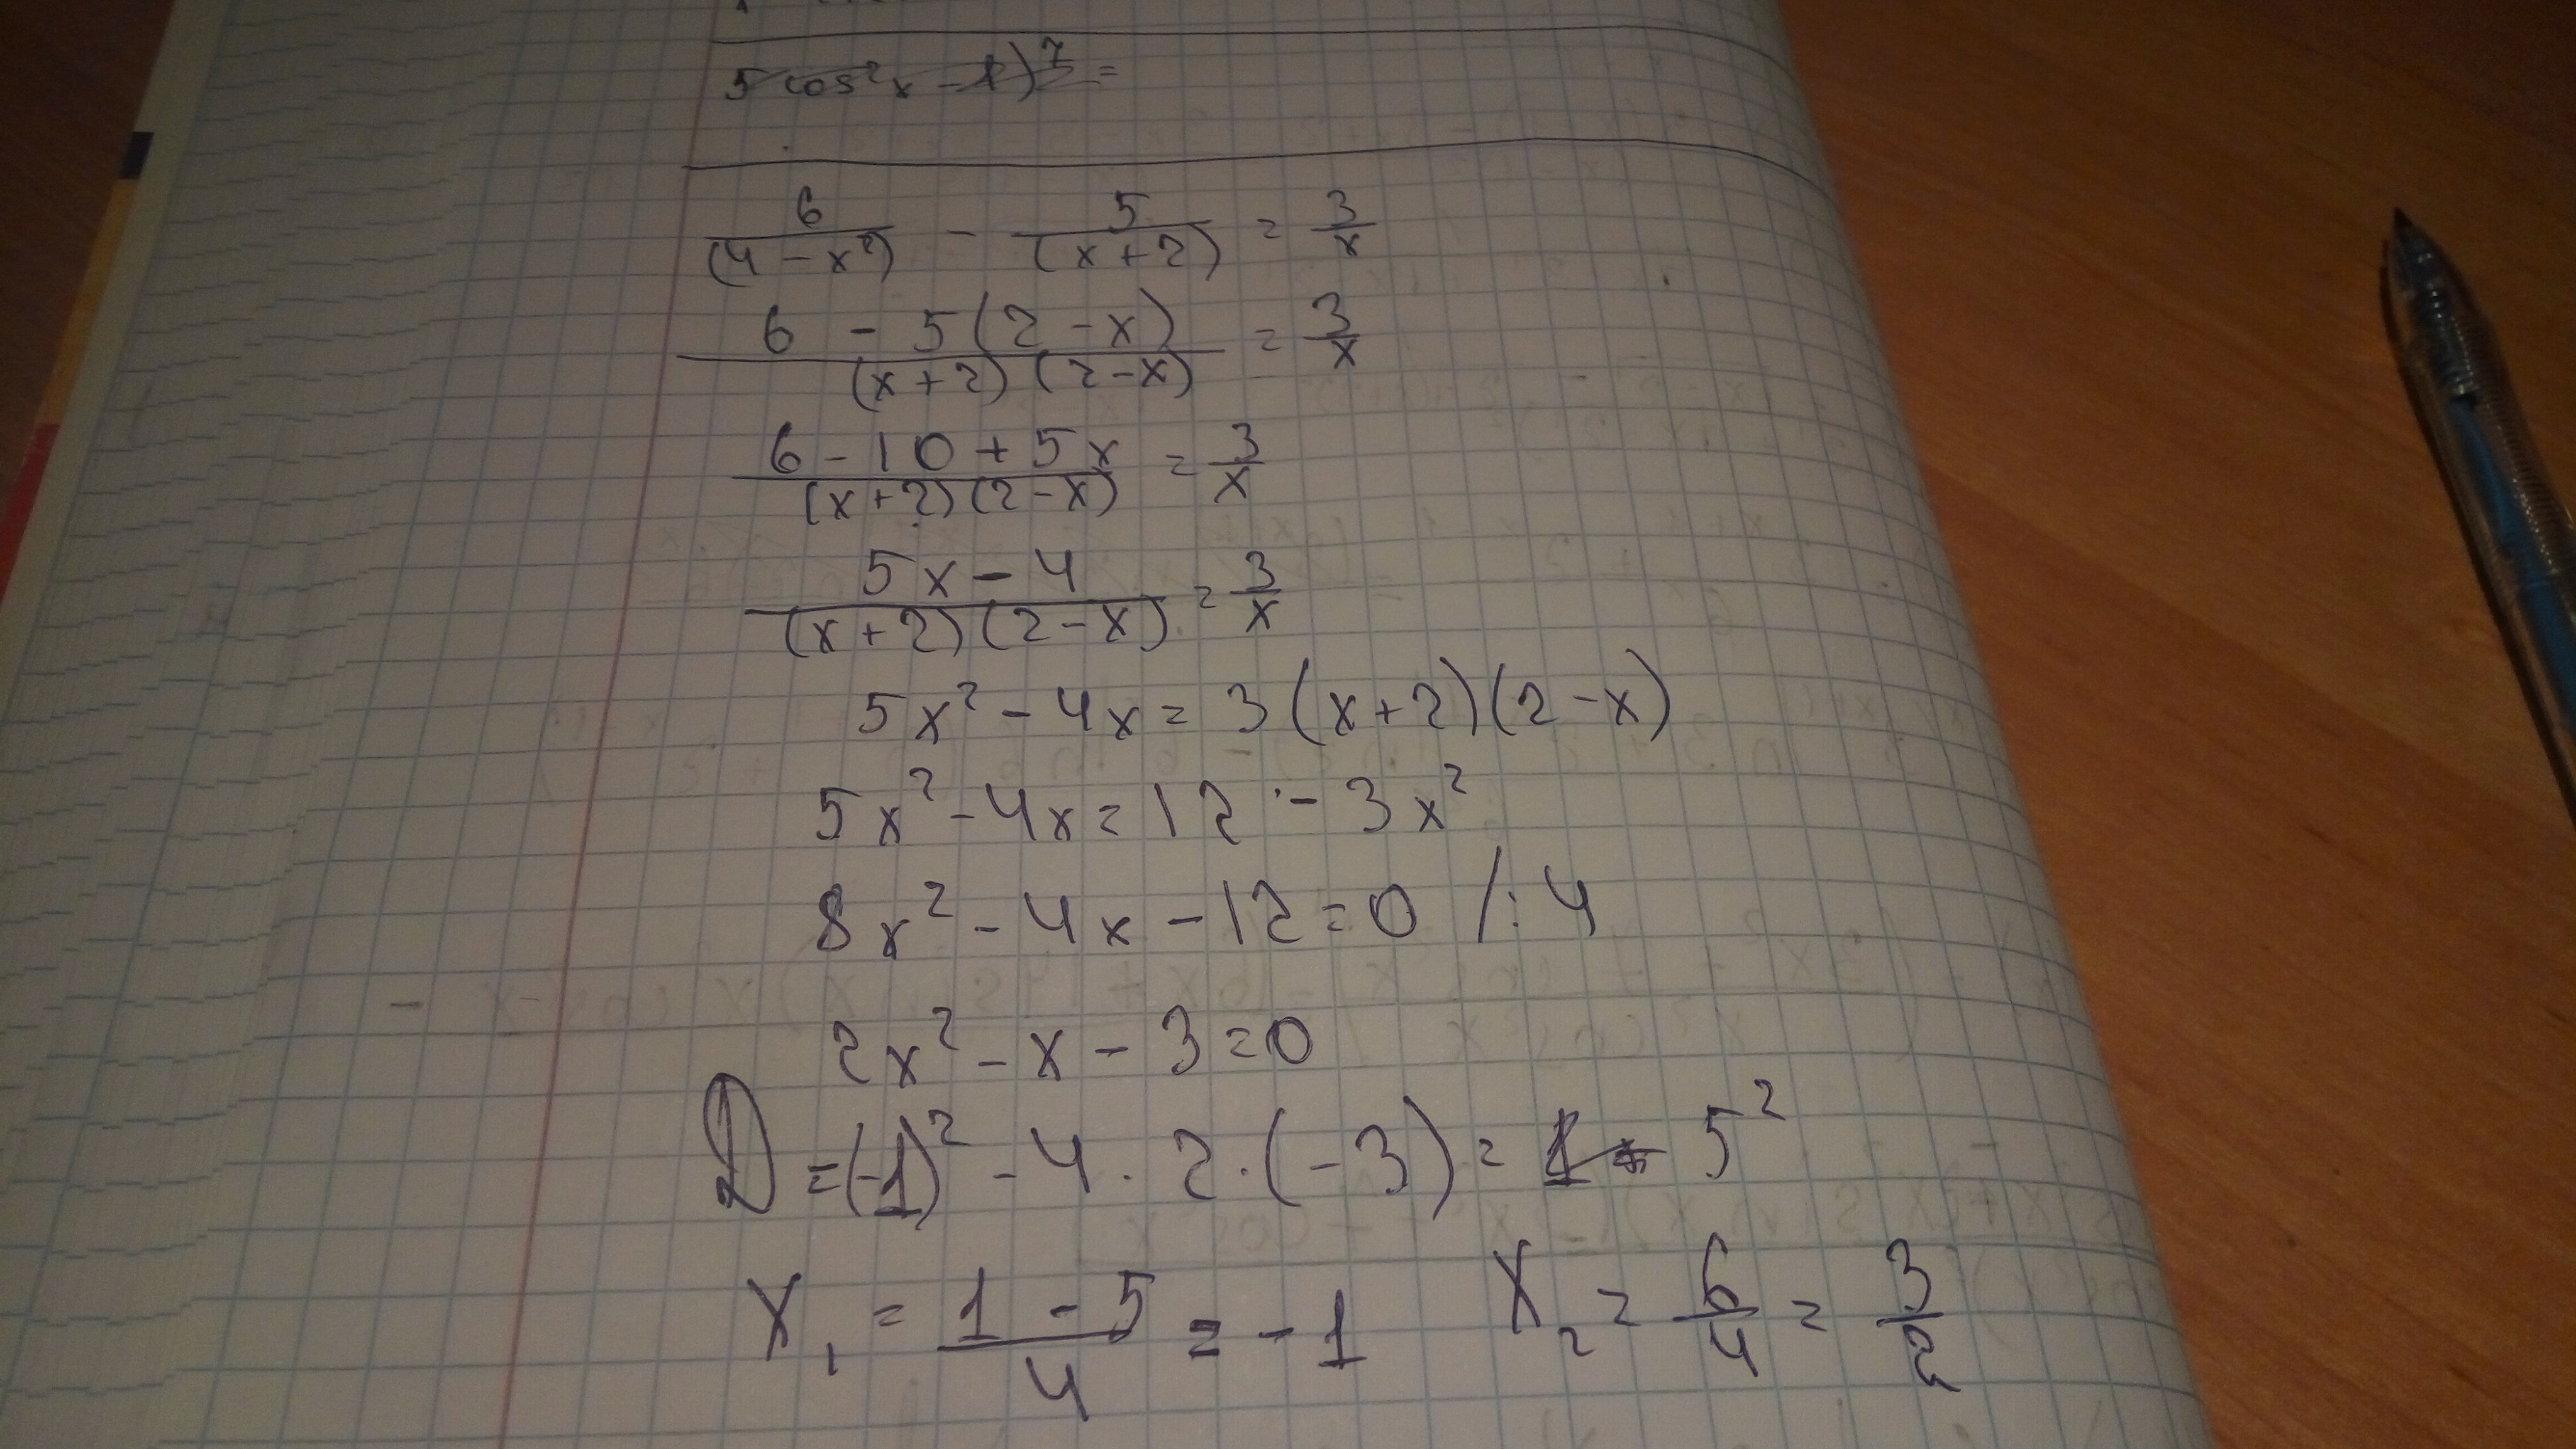 5 cos²x - 1)⁷ =
6/(4 - x²) - 5/(x + 2) = 3/x
(6 - 5(2 - x))/((x + 2)(2 - x)) = 3/x
(6 - 10 + 5x)/((x + 2)(2 - x)) = 3/x
(5x - 4)/((x + 2)(2 - x)) = 3/x
5x² - 4x = 3(x + 2)(2 - x)
5x² - 4x = 12 - 3x²
8x² - 4x - 12 = 0 /: 4
2x² - x - 3 = 0
D = (-1)² - 4 · 2 · (-3) = 5²
x₁ = (1 - 5)/4 = -1 x₂ = 6/4 = 3/2